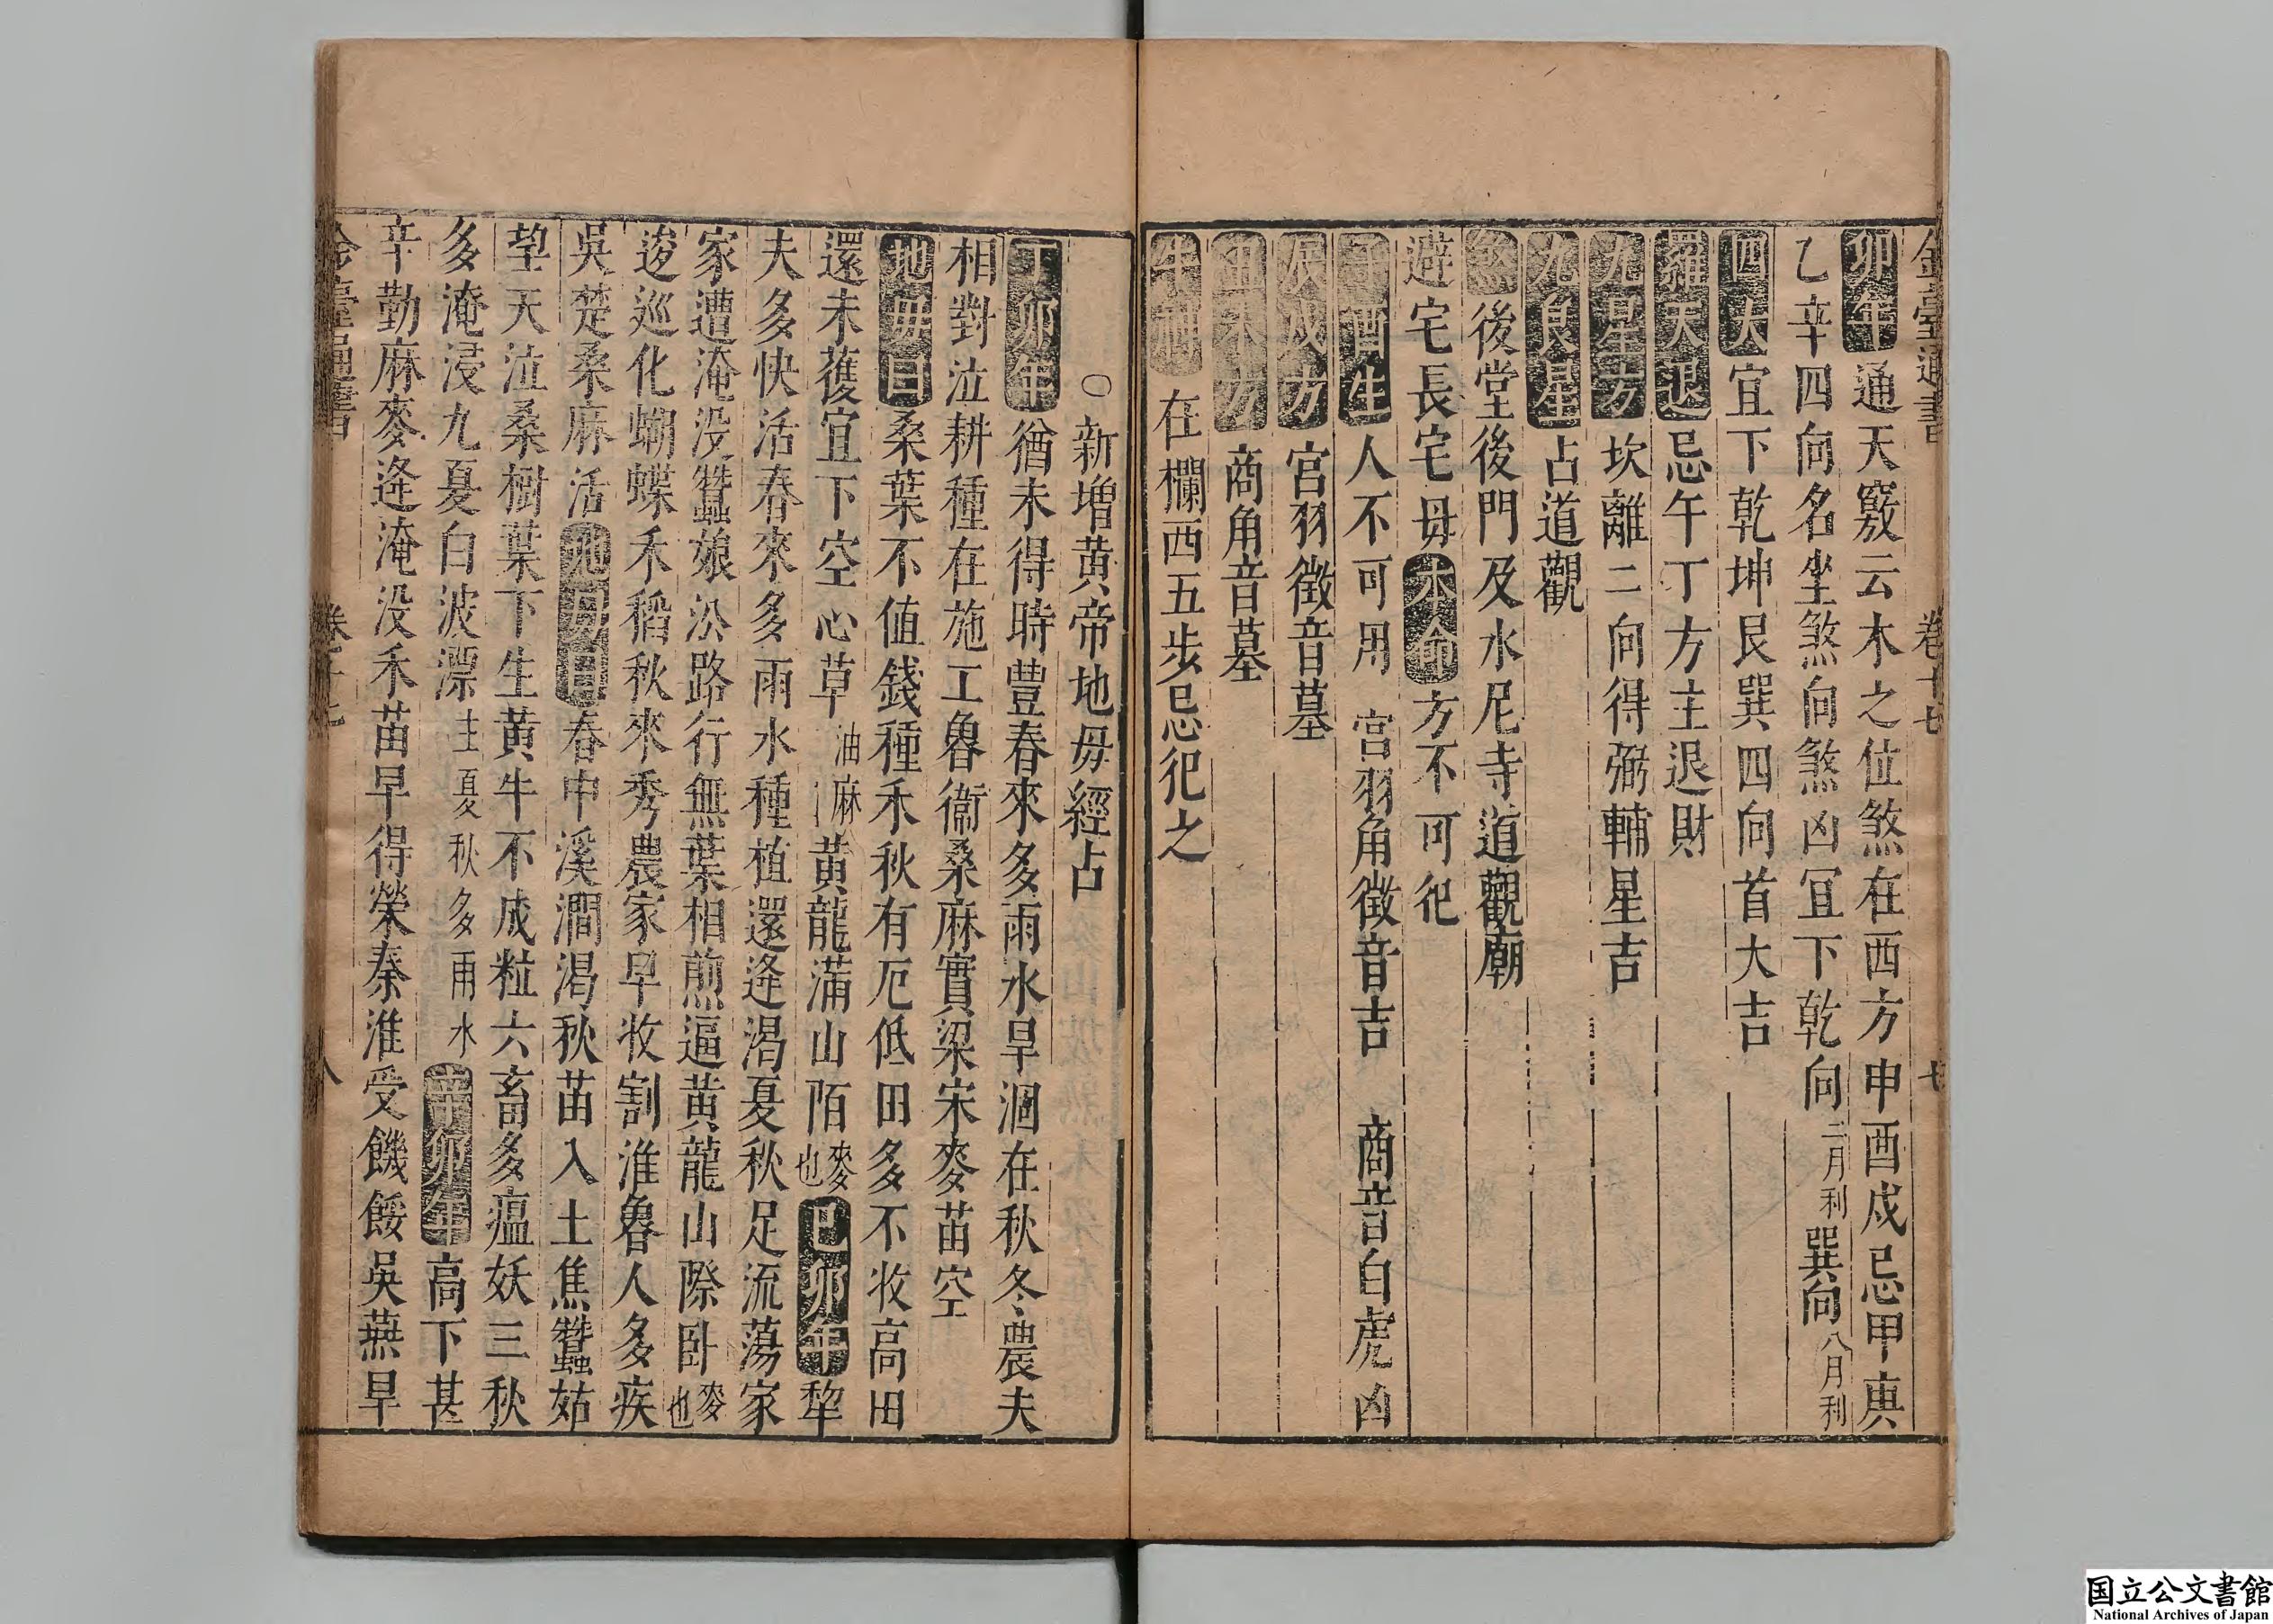 金臺通書 卷十七 七
卯年通天竅云木之位煞在西方申酉戍忌甲庚
乙辛四向名坐煞向煞凶宜下乾向二月利巽向八月利
四大宜下乾坤艮巽四向首大吉
羅天退忌午丁方主退財
九星方坎離二向得弼輔星吉
九良星占道觀
煞後堂後門及水尼寺道觀廟
避宅長宅母本命方不可犯
子酉生人不可用 宮羽角徵音吉 商音白虎凶
辰戍方宮羽徵音墓
丑未方商角音墓
牛祸在欄西五步忌犯之
○新增黃帝地母經占
丁卯年猶未得時豐春來多雨水旱涸在秋冬農夫
相對泣耕種在施工魯衞桑麻實梁宋麥苗空
地母曰桑葉不值錢種禾秋有厄低田多不收高田
還未蒦宜下空心草油麻黃龍滿山陌麥也己卯年犂
夫多快活春來多雨水種植還逄渴夏秋足流蕩家
家遭淹没蠶娘㳂路行無葉相煎逼黃龍山際卧麥也
逡巡化蝴蝶禾稻秋來秀農家早收割淮魯人多疾
吳楚桑麻活地母曰春中溪澗渴秋苗入土焦蠶姑
望天泣桑樹葉下生黃牛不成粒六畜多瘟妖三秋
多淹浸九夏白波漂主夏秋多雨水辛卯年高下甚
辛勤麻麥逄淹没禾苗早得榮秦淮受饑餒吳燕旱
金臺通書 卷十七 八
国立公文書館
National Archives of Japan